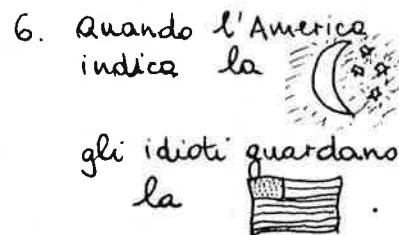 6. Quando l'America
indica la
gli idioti guardano
la .